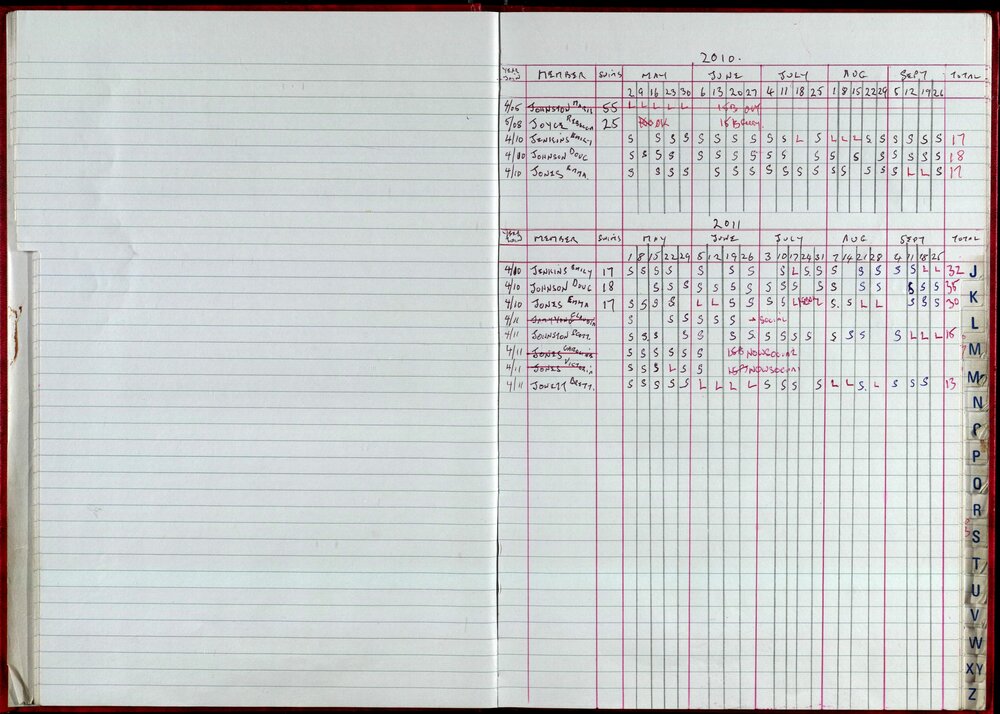 2010.
YEAR JOIN MEMBER SWIMS MAY JUNE JULY AUG SEPT TOTAL
2 9 16 23 30 6 13 20 27 4 11 18 25 1 8 15 22 29 5 12 19 26
4/05 JOHNSTON 55 L L L L L 15/8 OUT
5/08 JOYCE REBECCA 25 15/8
4/10 JENKINS EMILY S S S S S S S S S S L S L L L S S S S S S 17
4/10 JOHNSON DOUG S S S S S S S S S S S S S S S S S S 18
4/10 JONES EMMA S S S S S S S S S S S S S S S S L L S 17
2011
YEAR JOIN MEMBER SWIMS MAY JUNE JULY AUG SEPT TOTAL
1 8 15 22 29 5 12 19 26 3 10 17 24 31 7 14 21 28 4 11 18 25
4/10 JENKINS EMILY 17 S S S S S S S S L S S S S S S L L 32
4/10 JOHNSON DOUG 18 S S S S S S S S S S S S S S S S S 35
4/10 JONES EMMA 17 S S S S L L S S S S L S S L L S S S 30
4/11 CLAUDIA S S S S S S → SOCIAL
4/11 JOHNSTON SCOTT S S S S S S S S S S S S S S S L L L 15
4/11 JONES S S S S S S 15/8 NOW SOCIAL
4/11 JONES VICTORIA S S S L S S NOW SOCIAL
4/11 JOWETT BRETT S S S S S L L L L S S S S L L S L S S S 13
J
K
L
M
M
N
P
Q
R
S
T
U
V
W
XY
Z